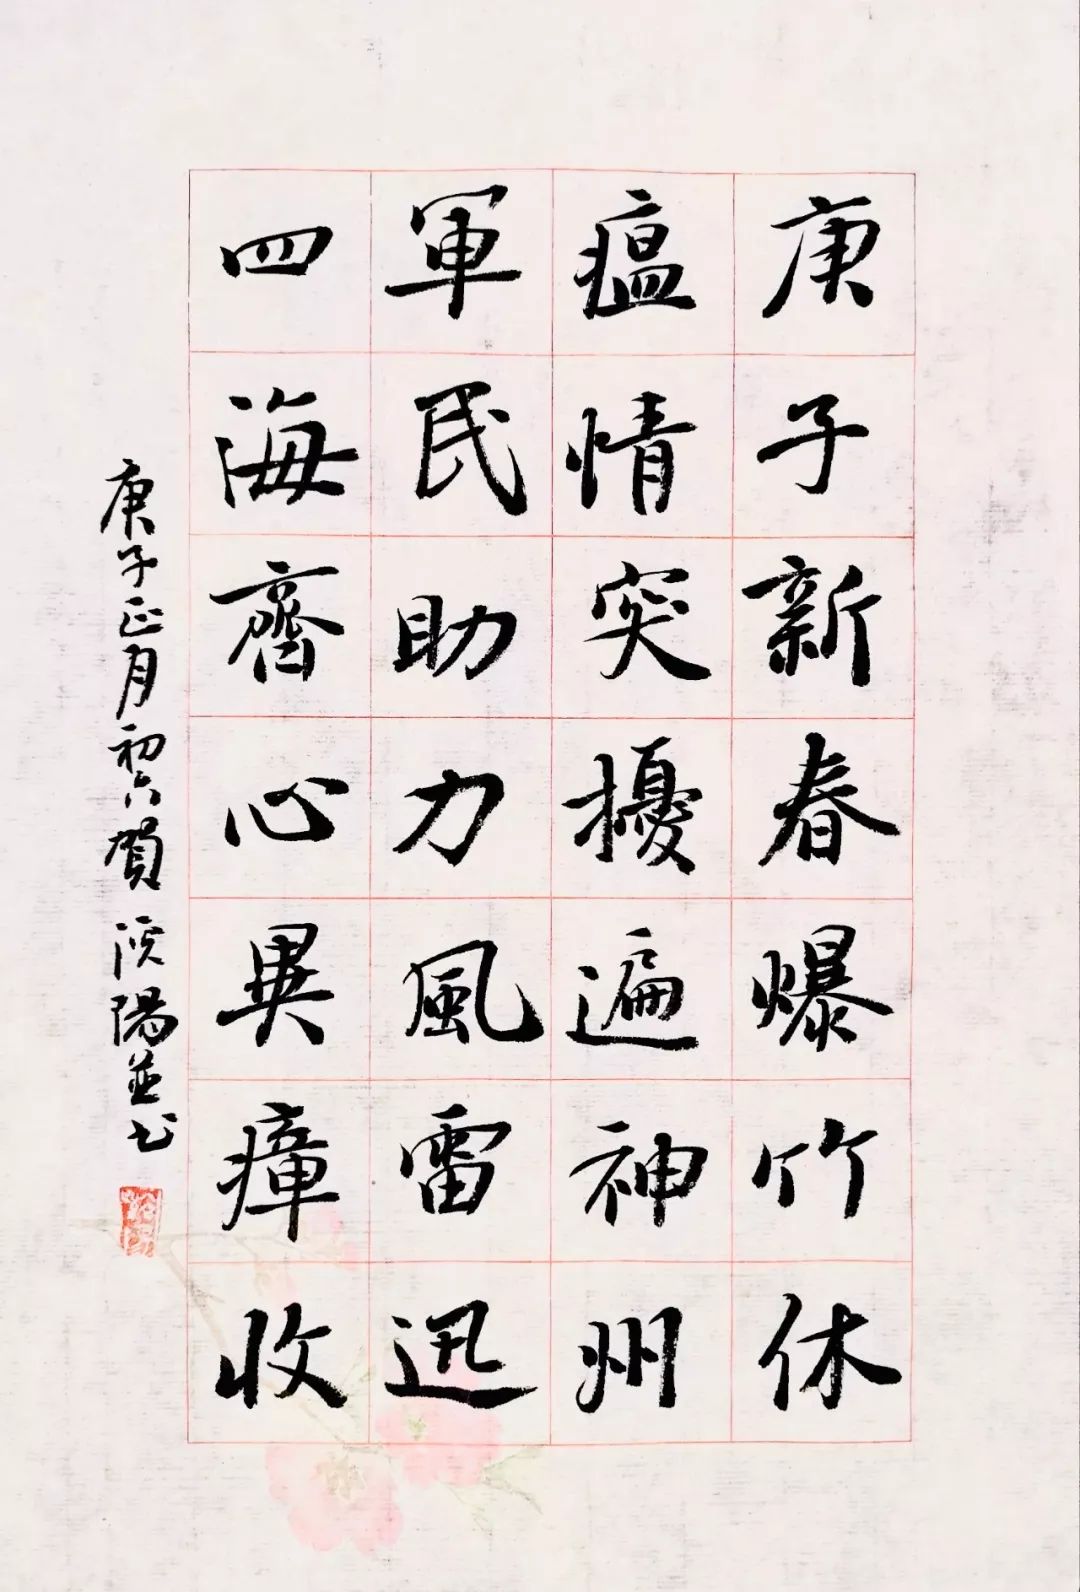 庚子新春爆竹休
瘟情突擾遍神州
軍民助力風雷迅
四海齊心異瘴收
庚子正月初六賀溪陽並书